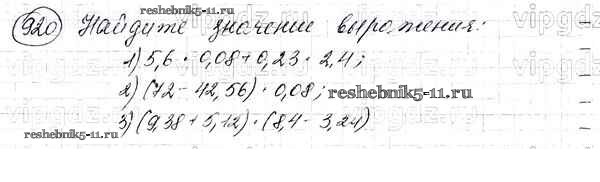 920 Найдите значение выражения:
1) 5,6 · 0,08 + 0,23 · 2,4;
2) (72 - 42,56) · 0,08;
reshebnik5-11.ru
reshebnik5-11.ru
3) (9,38 + 5,12) · (8,4 - 3,24)